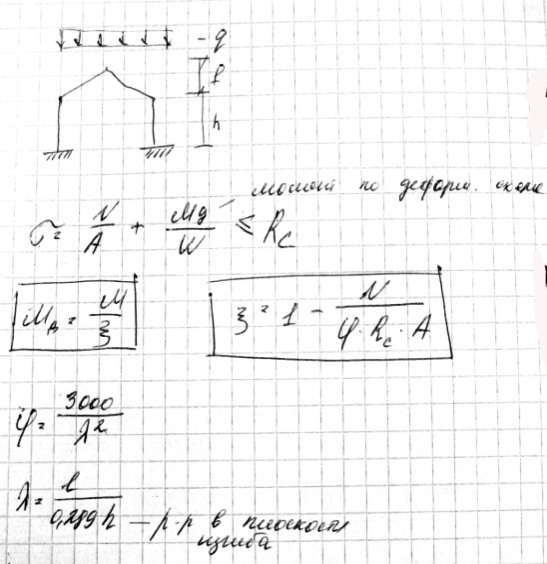 - q
f
h
момент по деформ. схеме
σ = N/A + Mд/W ≤ Rc
Mд = M/ξ
ξ = 1 - N/(φ · Rc · A)
φ = 3000/λ²
λ = l/0,289h — р-р в плоскости
изгиба